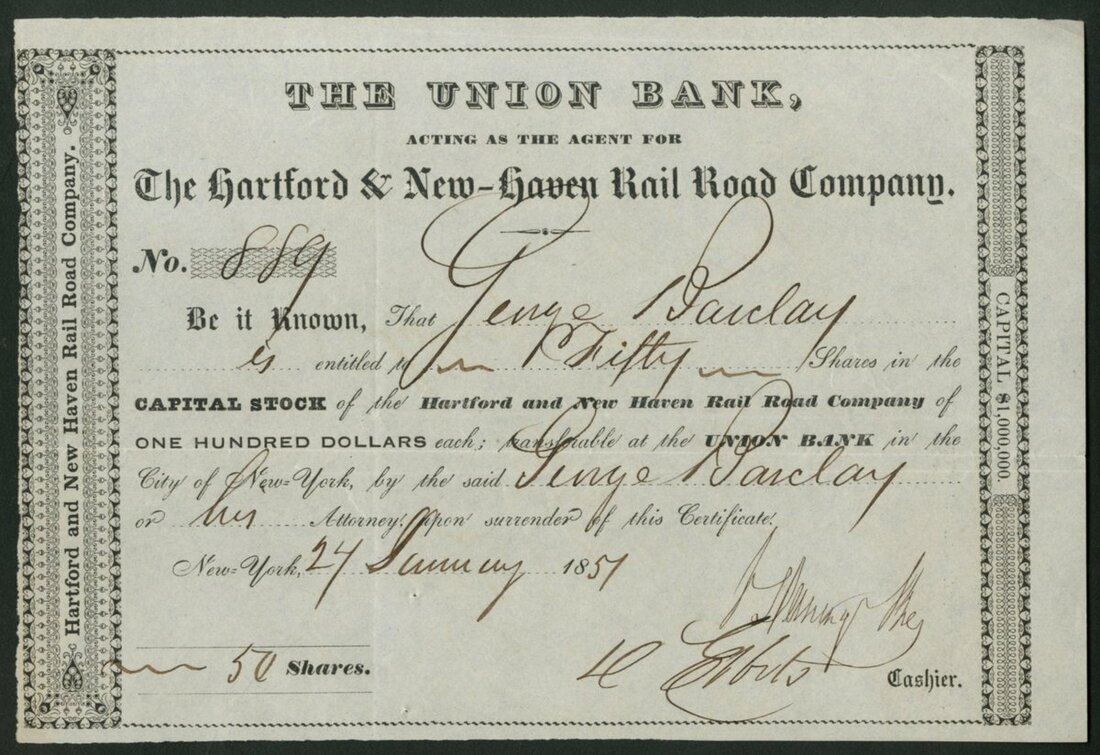 THE UNION BANK,
ACTING AS THE AGENT FOR
The Hartford & New-Haven Rail Road Company.
No. 889
Be it Known, That George Barclay
is entitled to Fifty Shares in the
CAPITAL STOCK of the Hartford and New Haven Rail Road Company of
ONE HUNDRED DOLLARS each; transferable at the UNION BANK in the
City of New=York, by the said George Barclay
or his Attorney, upon surrender of this Certificate.
New=York, 24 January 1851
50 Shares.
Cashier.
Hartford and New Haven Rail Road Company.
CAPITAL $1,000,000.